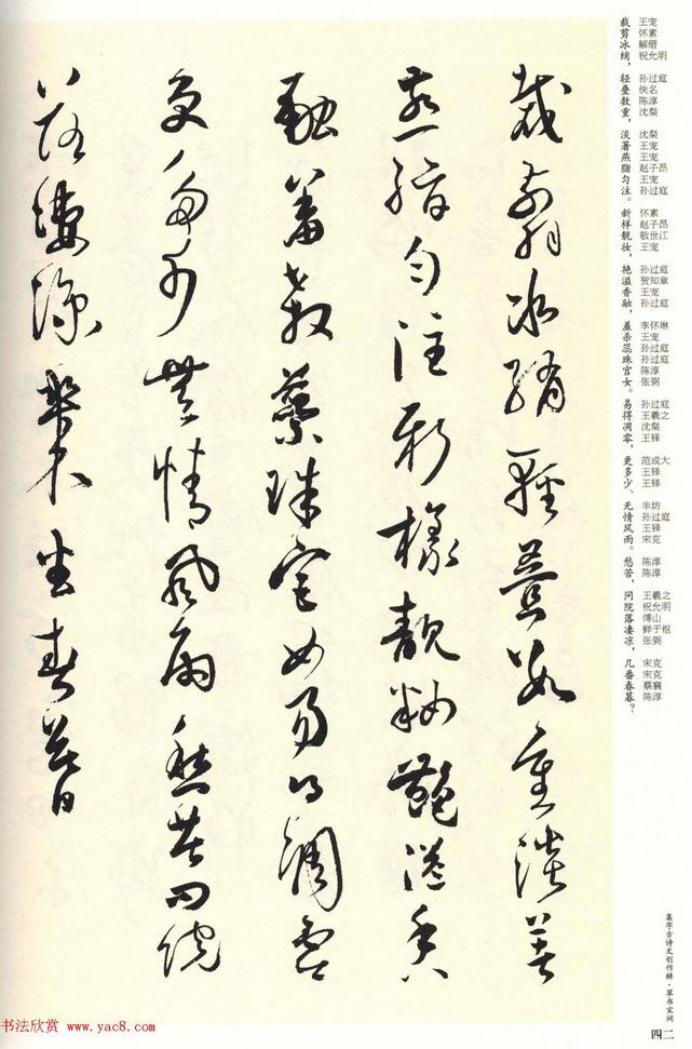 王宠
怀素
解缙
祝允明
孙过庭
佚名
陈淳
沈粲
沈粲
王宠
王宠
赵子昂
王宠
孙过庭
怀素
赵子昂
敬世江
王宠
孙过庭
贺知章
王宠
孙过庭
李怀琳
王宠
孙过庭
孙过庭
陈淳
张弼
孙过庭
王羲之
沈粲
王铎
范成大
王铎
王铎
丰坊
孙过庭
王铎
宋克
陈淳
陈淳
王羲之
祝允明
傅山
鲜于枢
张弼
宋克
宋克
蔡襄
陈淳
裁剪冰绡，轻叠数重，淡著燕脂匀注。新样靓妆，艳溢香融，羞杀蕊珠宫女。易得凋零，更多少、无情风雨。愁苦，问院落凄凉，几番春暮？
裁翦冰綃輕疊數重淡著
燕脂勻注新樣靚妝艷溢香
融羞殺蕊珠宮女易得凋零
更多少無情風雨愁苦問院
落淒涼幾番春暮
集字古诗文创作辑·草书宋词
四二
书法欣赏 www.yac8.com